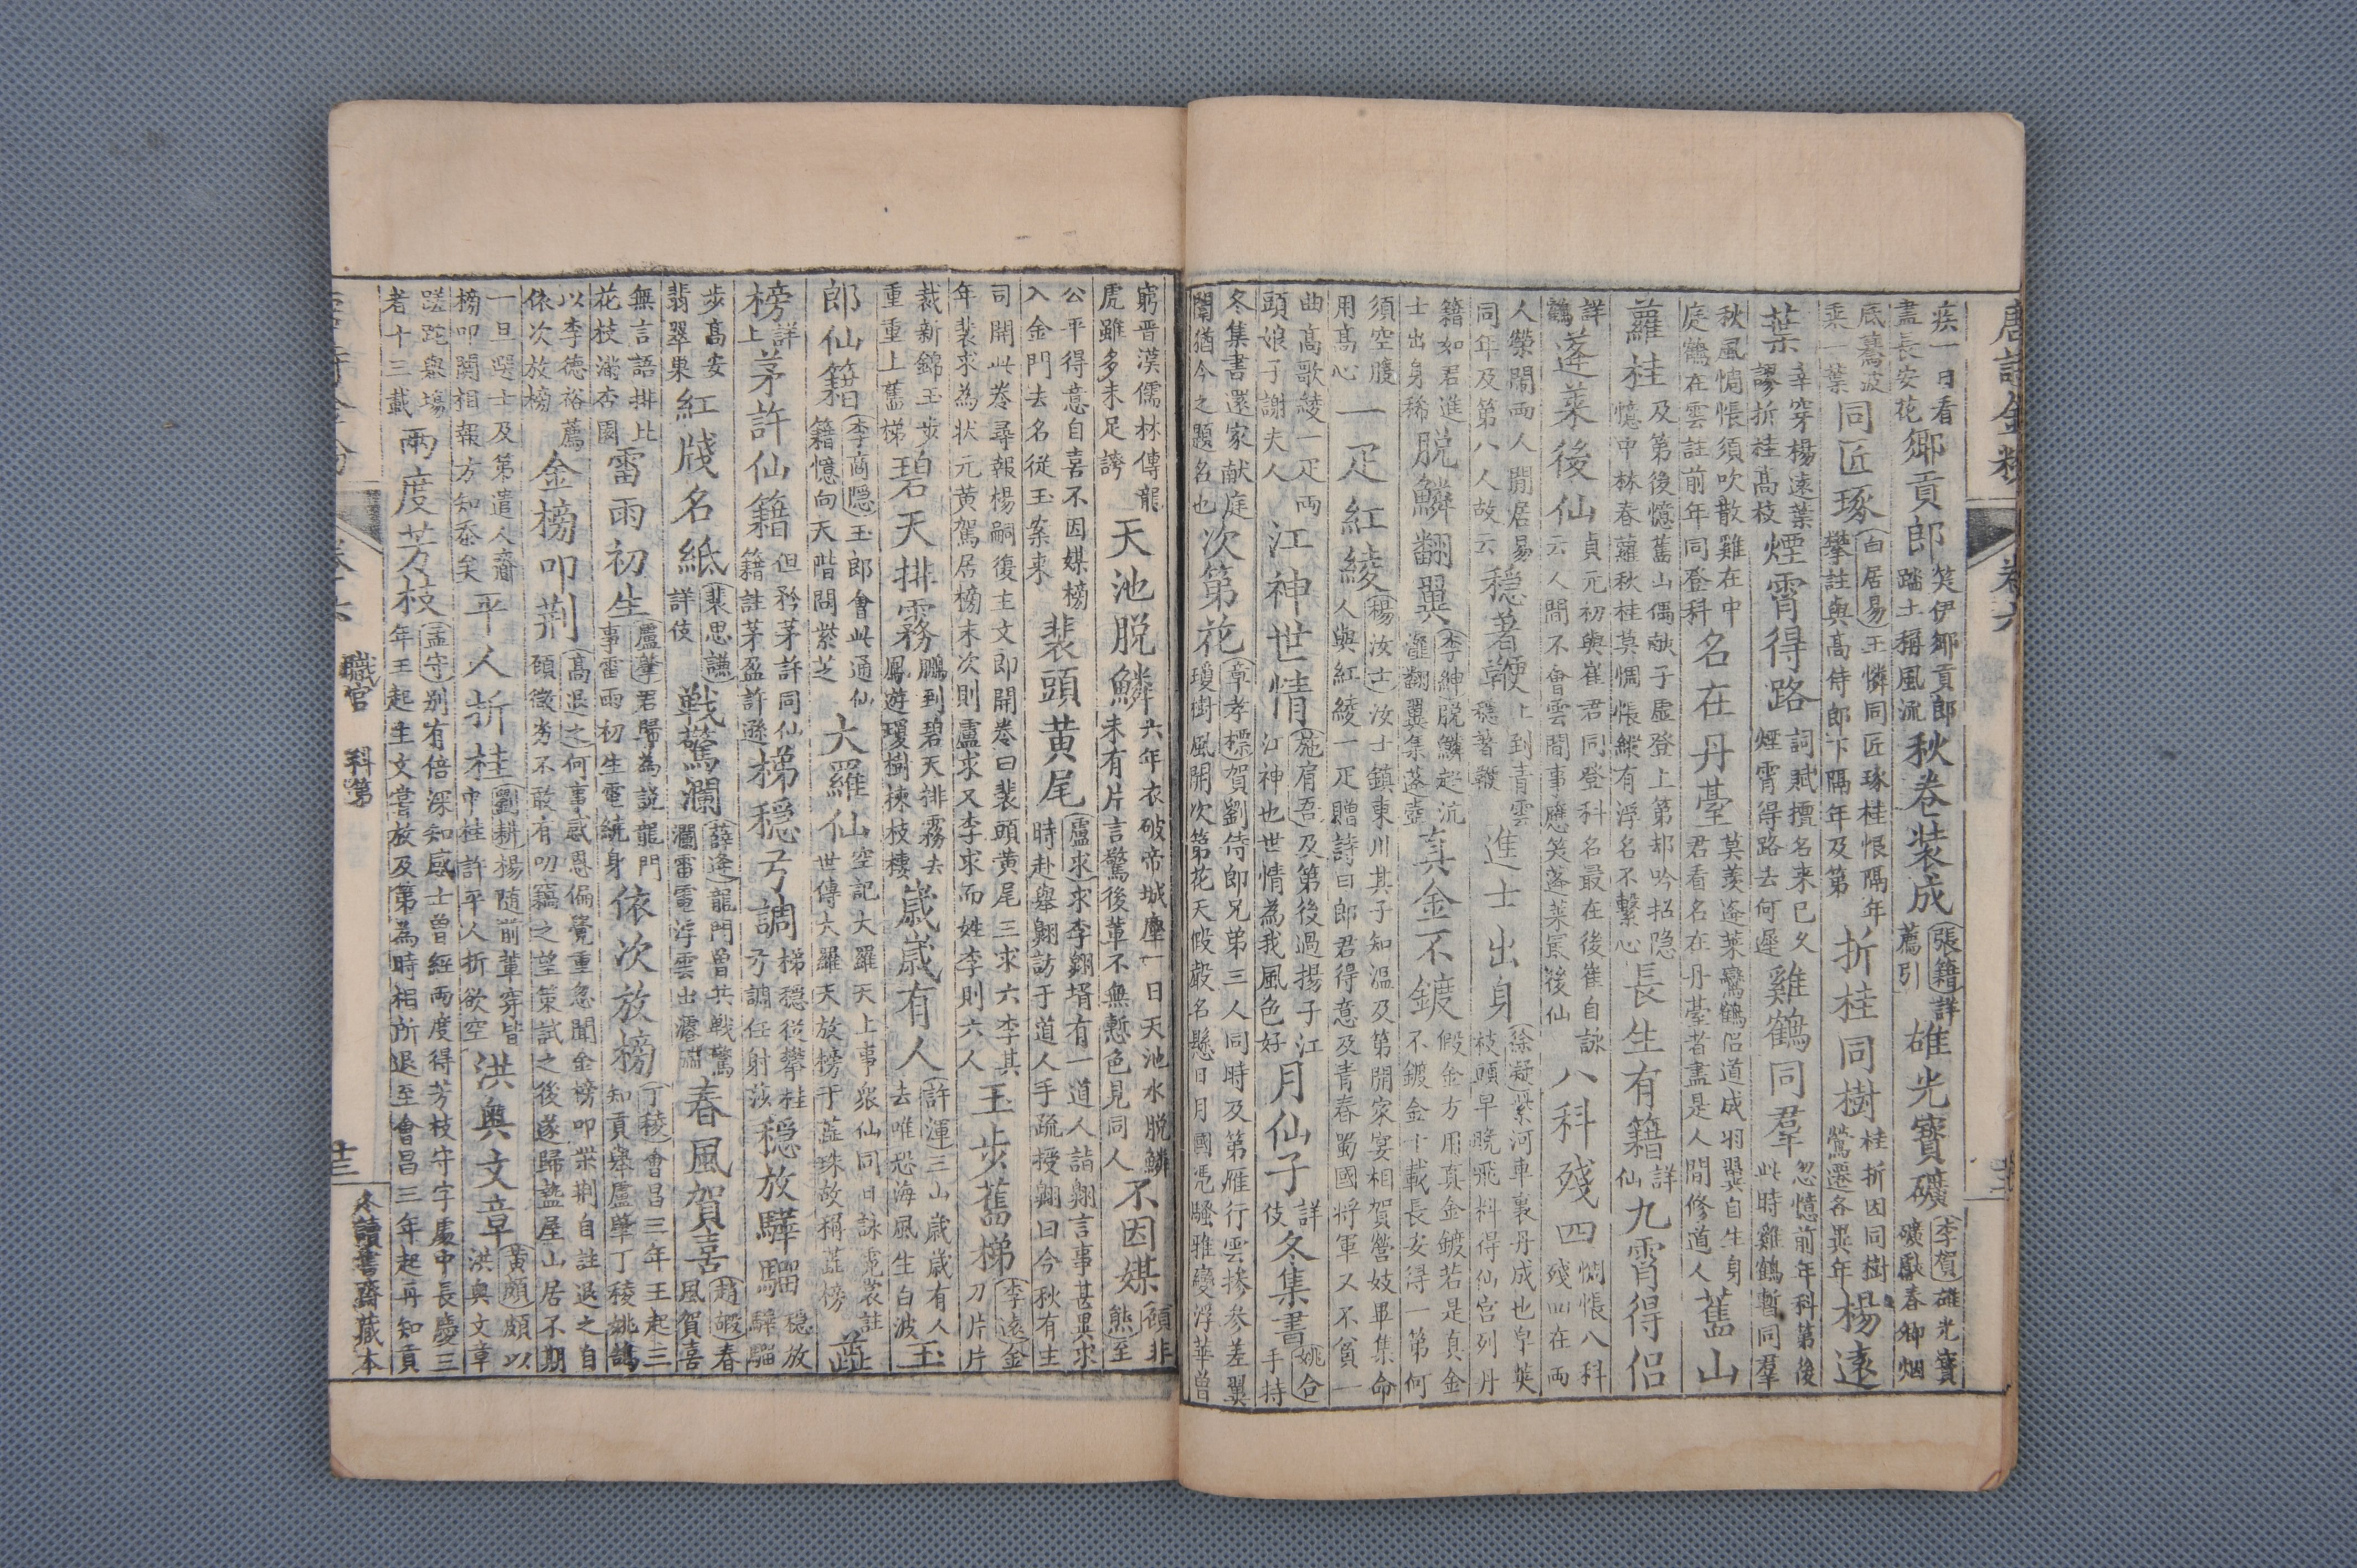 唐詩金粉 卷六
疾一日看盡長安花鄉貢郎笑伊鄉貢郎踏土稱風流秋卷裝成張籍詳薦引雄光寶礦李賀雄光寶礦獻春卿烟
底驀波乘一葉同匠琢白居易玉憐同匠琢桂恨隔年攀註與高侍郎下隔年及第折桂同樹桂折因同樹鶯遷各異年楊遠
葉辛穿楊遠葉謬折桂高枝煙霄得路詞賦擅名来已久煙霄得路去何遲雞鶴同羣忽憶前年科第後此時雞鶴暫同羣
秋風惆悵須吹散雞在中庭鶴在雲註前年同登科名在丹臺莫羨蓬萊鸞鶴侶道成羽翼自生身君看名在丹臺者盡是人間修道人舊山
蘿桂及第後憶舊山偶献子虛登上第却吟招隐憶中林春蘿秋桂莫惆悵縱有浮名不繫心長生有籍詳仙九霄得侶
詳鶴蓬萊後仙貞元初與崔君同登科名最在後崔自詠云人間不會雲間事應笑蓬萊㝡後仙八科殘四惆悵八科殘四在兩
人榮鬧兩人閒居易同年及第八人故云穩著鞭上到青雲穩著鞭進士出身徐凝紫河車裏丹成也皁莢枝頭早晚飛料得仙宮列丹
籍如君進士出身稀脫鱗翻翼李紳脫鱗超沆瀣翻翼集蓬壺真金不鍍假金方用真金鍍若是真金不鍍金十載長安得一第何
須空腹用高心一疋紅綾楊汝士汝士鎮東川其子知溫及第開家宴相賀營妓畢集命人與紅綾一疋贈詩曰郎君得意及青春蜀國將軍又不貧一
曲高歌綾一疋兩頭娘子謝夫人江神世情施肩吾及第後過揚子江江神也世情為我風色好月仙子詳伎冬集書姚合手持
冬集書還家献庭闈猶今之題名也次第花章孝標賀劉侍郎兄弟三人同時及第雁行雲摻參差翼瓊樹風開次第花天假聲名懸日月國凭騷雅變浮華曾
窮晉漢儒林傳龍虎雖多未足誇天池脫鱗六年衣破帝城塵一日天池水脫鱗未有片言驚後輩不無慙色見同人不因媒顧非熊至
公平得意自喜不因媒榜入金門去名從玉案來裴頭黃尾盧求求李翱壻有一道人詣翱言事甚異求時赴舉翱訪于道人手疏授翱曰今秋有主
司開此卷尋報楊嗣復主文即開卷曰裴頭黃尾三求六李其年裴求為状元黃駕居榜末次則盧求又李求而姓李則六人玉步舊梯李遠金刀片片
裁新錦玉步重重上舊梯碧天排霧鵬到碧天排霧去鳳遊瓊樹揀枝棲歲歲有人許渾三山歲歲有人去唯恐海風生白波玉
郎仙籍李商隐玉郎會此通仙籍憶向天階問紫芝大羅仙空記大羅天上事衆仙同日詠霓裳註世傳大羅天放榜于蕋珠故稱蕋榜蕋
榜詳上茅許仙籍但矜茅許同仙籍註茅盈許遜梯穩弓調梯穩從攀桂弓調任射莎穩放驊騮穩放驊騮
步高安翡翠巢紅牋名紙裴思謙詳伎戰驚瀾薛逢龍門曾共戰驚瀾雷電浮雲出濬湍春風賀喜趙嘏春風賀喜
無言語排比花枝滿杏園雷雨初生盧肇君歸為說龍門事雷雨初生電繞身依次放榜丁稜會昌三年王起三知貢舉盧肇丁稜姚鵠
以李德裕薦依次放榜金榜叩荆高退之何事感恩偏覺重忽聞金榜叩柴荆自註退之自顧微劣不敢有叨竊之望策試之後遂歸盩厔山居不期
一旦選士及第遣人齎榜叩關相報方知忝矣平人折桂劉耕楊随前輩穿皆中桂許平人折欲空洪奥文章黃頗頗以洪奥文章
蹉跎舉塲者十三載兩度芳枝孟守别有倍深知感士曾經兩度得芳枝守字處中長慶三年王起主文嘗放及第為時相所退至會昌三年起再知貢
卷六 職官 科第 廿三 冬讀書齋藏本